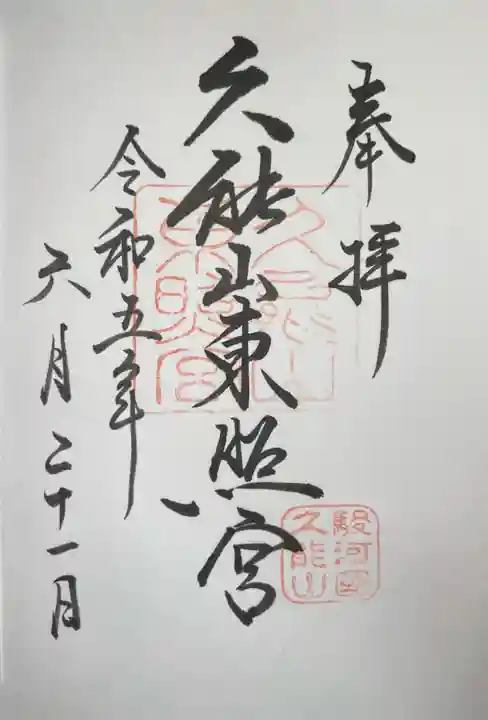 奉拝
久能山東照宮
令和五年
六月二十一日
久能山東照宮
駿河国
久能山